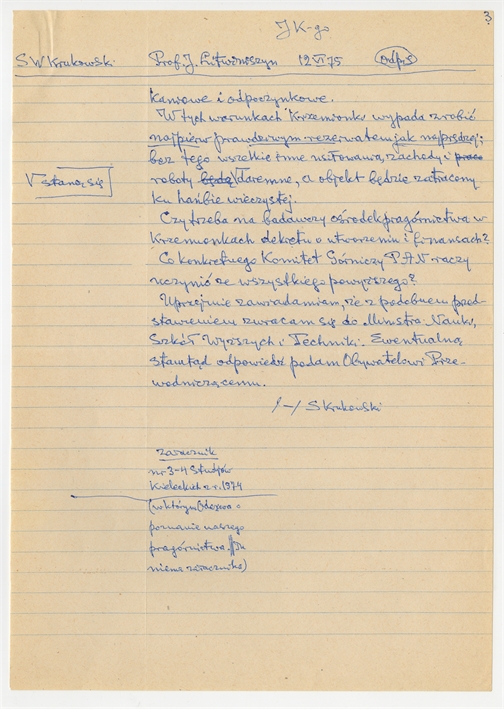 3
JK-go
S W Krukowski Prof. J. Litwoniszyn 12 VI 75 odpis
kaniowe i odpoczynkowe.
W tych warunkach Krzemionki wypada zrobić
najpierw prawdziwym rezerwatem jak najprędzej;
bez tego wszelkie inne usiłowania, zachody i prace
V staną się
roboty będą V daremne, a objekt będzie zatracony
ku hańbie wieczystej.
Czy trzeba na badawczy ośrodek pragórnictwa w
Krzemionkach dekretu o utworzeniu i finansach?
Co konkretnego Komitet Górniczy PAN raczy
uczynić ze wszystkiego powyższego?
Uprzejmie zawiadamiam, że z podobnem przed-
stawieniem zwracam się do Ministra Nauki,
Szkół Wyższych i Techniki. Ewentualną
stamtąd odpowiedź podam Obywatelowi Prze-
wodniczącemu.
/-/ S Krukowski
załącznik
nr 3-4 Studjów
Kieleckich z r. 1974
(w którym
poznanie naszego
pragórnictwa.
niema załącznika)